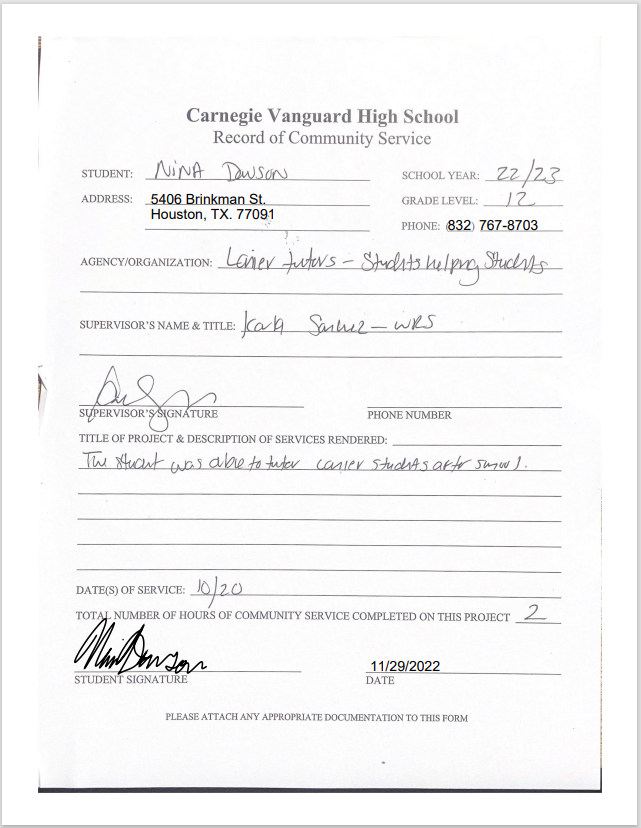 Carnegie Vanguard High School
Record of Community Service
STUDENT: NINA Dawson SCHOOL YEAR: 22/23
ADDRESS: 5406 Brinkman St. GRADE LEVEL: 12
Houston, TX. 77091 PHONE: (832) 767-8703
AGENCY/ORGANIZATION: Lanier tutors - Students helping Students
SUPERVISOR'S NAME & TITLE: Karla - WRS
SUPERVISOR'S SIGNATURE PHONE NUMBER
TITLE OF PROJECT & DESCRIPTION OF SERVICES RENDERED:
The student was able to tutor Lanier students after school.
DATE(S) OF SERVICE: 10/20
TOTAL NUMBER OF HOURS OF COMMUNITY SERVICE COMPLETED ON THIS PROJECT 2
Nina Dawson 11/29/2022
STUDENT SIGNATURE DATE
PLEASE ATTACH ANY APPROPRIATE DOCUMENTATION TO THIS FORM